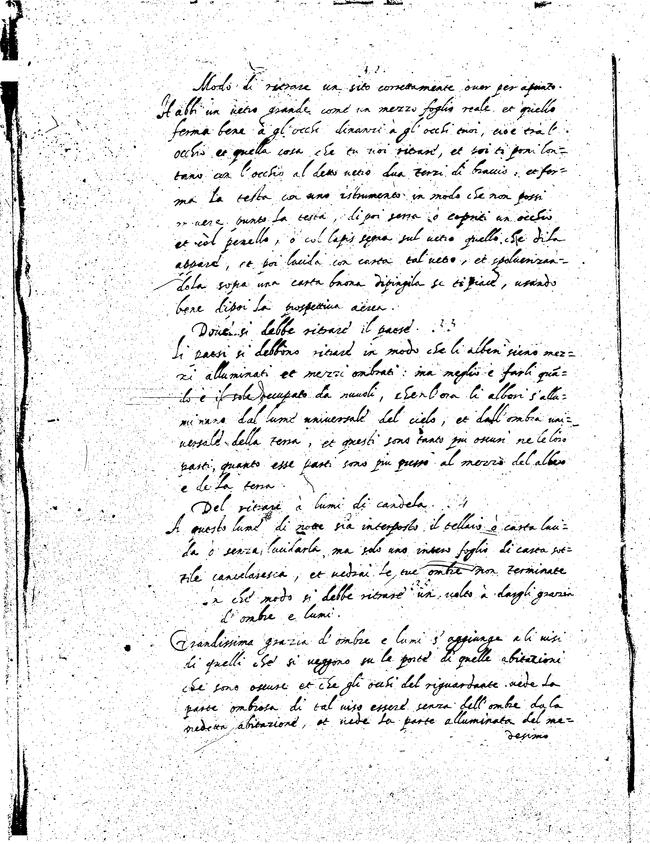 32
Modo di ritrare un sito correttamente over per apunto.
Habbi un vetro grande come un mezzo foglio reale et quello
ferma bene à gl'occhi dinanzi à gl'occhi tuoi, cioè tra l'
occhio et quella cosa che tu voi ritrare, et poi ti poni lon=
tano con l'occhio al detto vetro dua terzi di braccio, et for=
ma la testa con uno istrumento in modo che non possi
muvere punto la testa, di poi serra ò copriti un occhio
et col penello, ò col lapis segna sul vetro quello che di la
appare, et poi lucida con carta tal vetro, et spolverizan=
dola sopra una carta buona dipingila se ti piace, usando
bene dipoi la prospettiva aerea.
Dove si debbe ritrare il paese. 33
Li paesi si debbono ritrare in modo che li alberi sieno mez=
zi alluminati et mezzi ombrati: ma meglio è farli quã=
do è il sole occupato da nuvoli, che al'ora li albori s'allu=
minano dal lume universale del cielo, et dall'ombra uni=
versale della terra, et questi sono tanto piu oscuri ne le loro
parti, quanto esse parti sono piu presso al mezzo del albero
e de la terra
Del ritrare à lumi di candela. 34
A questo lume di notte sia interposto il tellaio ò carta luci=
da ò senza lucidarla, ma solo uno intero foglio di carta sot=
tile cancelaresca, et vedrai le tue ombre non terminate
in che modo si debbe ritrare un volto à dargli grazia
d'ombre e lumi.
Grandissima grazia d'ombre e lumi s'aggiunge a li visi
di quelli che si veggono su le porte di quelle abitazioni
che sono oscure et che gli occhi del riguardante vede la
parte ombrosa di tal viso essere senza dell'ombre da la
predetta abitazione, et vede la parte alluminata del me=
desimo